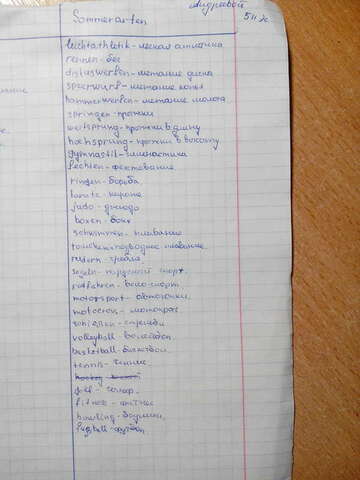 Андреевой
Sommerarten 5и класс
leichtathletik - легкая атлетика
rennen - бег
diskuswerfen - метание диска
speerwurf - метание копья
hammerwerfen - метание молота
springen - прыжки
weitsprung - прыжки в длину
hochsprung - прыжки в высоту
gymnastik - гимнастика
fechten - фехтование
ringen - борьба
karate - карате
judo - дзюдо
boxen - бокс
schwimmen - плавание
tauchen - подводное плавание
rudern - гребля
segeln - парусный спорт
radfahren - вело-спорт
motorsport - автогонки
motocross - мотокросс
schießen - стрельба
volleyball - волейбол
basketball - баскетбол
tennis - теннис
hockey - хоккей
golf - гольф
fitness - фитнес
bowling - боулинг
fußball - футбол